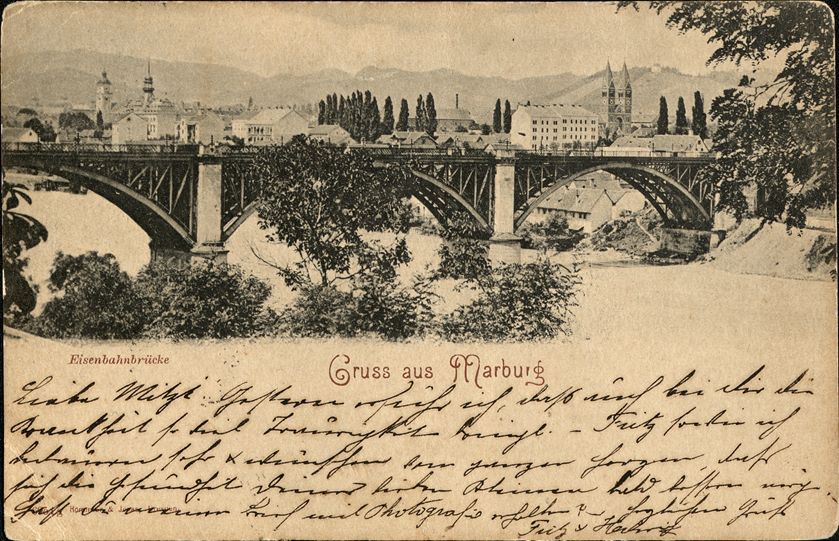 Eisenbahnbrücke
Gruss aus Marburg
Liebe Mitzi! Gestern erfuhr ich, daß auch bei Dir die
Krankheit so viel Traurigkeit bringt. – Fritz sowie ich
bedauern sehr & wünschen von ganzem Herzen, daß
sich die Gesundheit Deiner lieben Kleinen bald bessern möge.
Hast meinen Brief mit Photografie erhalten? – Herzlichen Gruß
Fritz & Hedwig